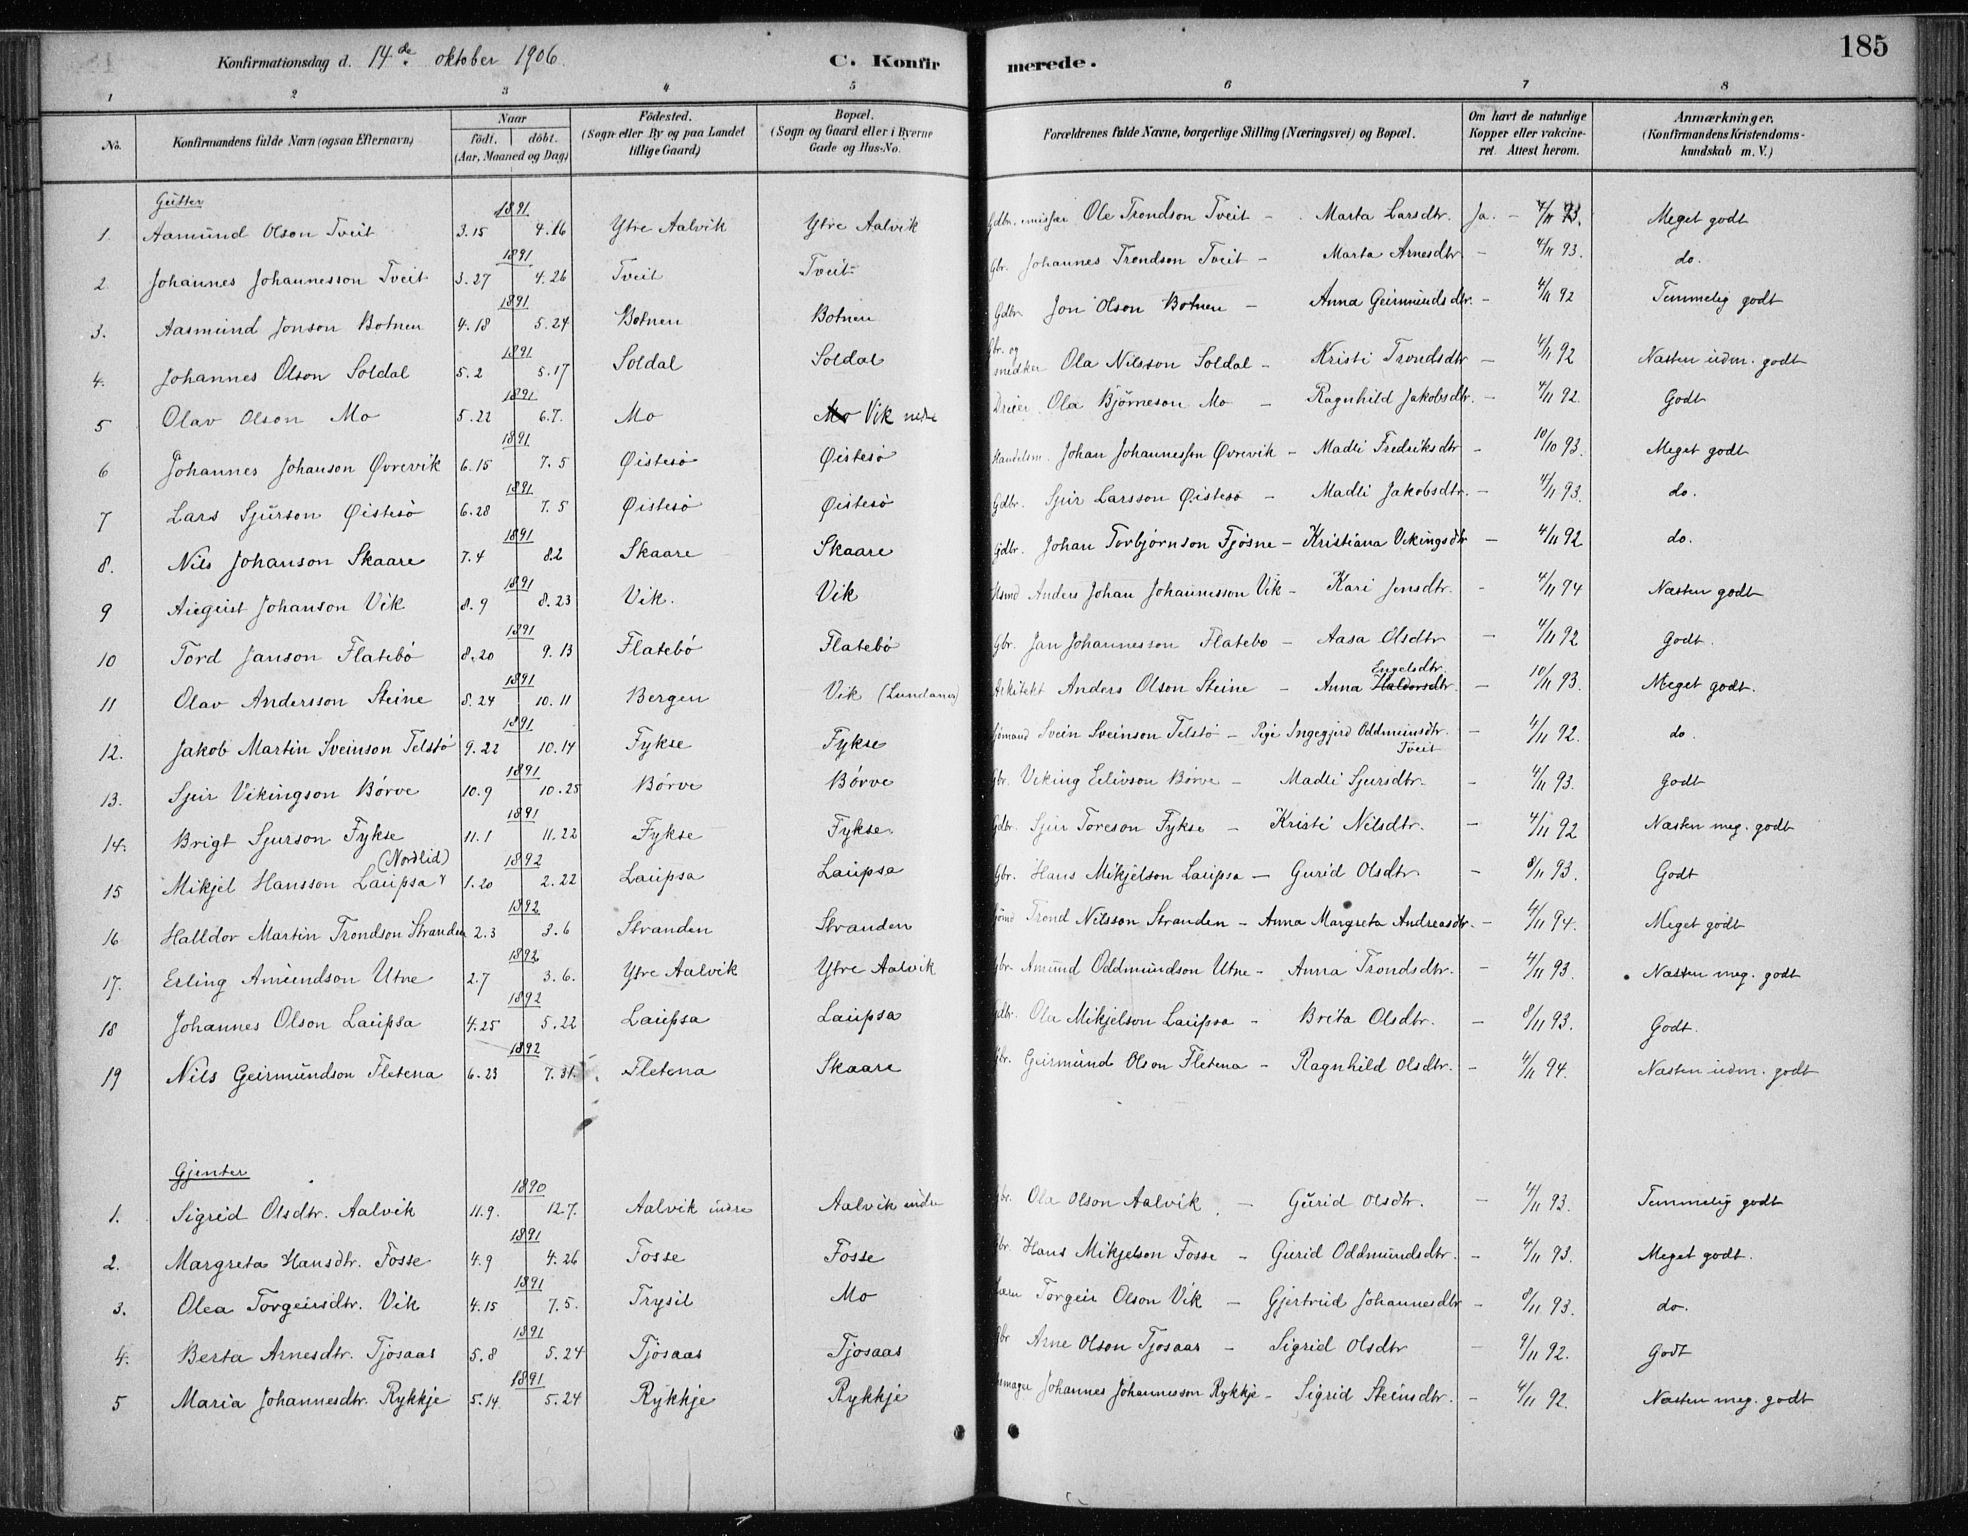 Konfirmationsdag d. 14de oktober 1906. C. Konfirmerede. 185
1 2 3 4 5 6 7 8
No. Konfirmandens fulde Navn (ogsaa Efternavn) Naar födt. döbt. (Aar, Maaned og Dag) Födested. (Sogn eller By og paa Landet tillige Gaard) Bopæl. (Sogn og Gaard eller i Byerne Gade og Hus-No. Forældrenes fulde Navne, borgerlige Stilling (Næringsvei) og Bopæl. Om havt de naturlige Kopper eller vakcineret. Attest herom. Anmærkninger. (Konfirmandens Kristendomskundskab m. V.)
Gutter
1. Aamund Olson Tveit 1891 3.15 4.16 Ytre Aalvik Ytre Aalvik Gdbr. Ole Trondson Tveit – Marta Larsdtr. Ja. – 4/11 93. Meget godt
2. Johannes Johannesson Tveit 1891 3.27 4.26 Tveit Tveit Gbr. Johannes Trondson Tveit – Marta Arnesdtr – 4/11 93. do.
3. Aasmund Jonson Botnen 1891 4.18 5.24 Botnen Botnen Gdbr. Jon Olson Botnen – Anna Geirmundsdtr. – 4/11 92 Temmelig godt
4. Johannes Olson Soldal 1891 5.2 5.17 Soldal Soldal Gbr. og snedker Ola Nilsson Soldal – Kristi Trondsdtr – 4/11 92 Næsten udm. godt
5 Olav Olson Mo 1891 5.22 6.7. Mo Mo Vik nedre Dreier Ola Björneson Mo – Ragnhild Jakobsdtr. – 4/11 92. Godt
6 Johannes Johanson Øvrevik 1891 6.15 7.5 Øistesö Øistesö Handelsm. Johan Johannesson Øvrevik – Madli Fredriksdtr – 10/10 93. Meget godt
7 Lars Sjurson Øistesö 1891 6.28 7.5 Øistesö Øistesö Gdbr. Sjur Larsson Øistesö – Madli Jakobsdtr. – 4/11 93. do.
8. Nils Johanson Skaare 1891 7.4 8.2 Skaare Skaare Gdbr. Johan Torbjørnson Fjøsne – Kristiana Vikingsdtr – 4/11 92 do.
9 Johanson Vik 1891 8.9 8.23 Vik. Vik Husmd Anders Johan Johannesson Vik – Kari Jensdtr. – 4/11 94 Næsten godt
10 Tord Janson Flatebö 1891 8.20 9.13 Flatebö Flatebö Gbr. Jan Johannesson Flatebo – Aasa Olsdtr – 4/11 92 Godt.
11 Olav Andersson Steine 1891 8.24 10.11 Bergen Vik (Lundanes) Arkitekt Anders Olson Steine – Anna Haldorsdtr. Engelsdtr. – 10/11 93. Meget godt.
12. Jakob Martin Sveinson Telstö 1891 9.22 10.14 Fykse Fykse Sjömand Svein Sveinson Telstö – Pige Ingegjerd Oddmundsdtr. Tveit – 4/11 92. do.
13. Sjur Vikingson Börve 1891 10.9 10.25 Börve Börve Gbr. Viking Eilivson Börve – Madli Sjursdtr. – 4/11 93. Godt
14. Brigt Sjurson Fykse 1891 11.1 11.22 Fykse Fykse. Gdbr. Sjur Toreson Fykse – Kristi Nilsdtr. – 4/11 92 Næsten meg. godt
15 Mikjel Hansson Laupsa (Nordlid) 1892 1.20 2.22 Laupsa Laupsa Gbr. Hans Mikjelson Laupsa – Gurid Olsdtr. – 8/11 93. Godt
16. Halldor Martin Trondson Stranden 1892 2.3 3.6 Stranden Stranden Sjömd Trond Nilsson Stranden – Anna Margreta Andreasdtr. – 4/11 94. Meget godt
17. Erling Amundson Utne 1892 2.7 3.6. Ytre Aalvik Ytre Aalvik Gbr. Amund Oddmundson Utne – Anna Trondsdtr. – 4/11 93. Næsten meg. godt
18 Johannes Olson Laupsa 1892 4.25 5.22 Laupsa Laupsa Gdbr. Ola Mikjelson Laupsa – Brita Olsdtr. – 8/11 93. Godt.
19 Nils Geirmundson Fletena 1892 6.23 7.31. Fletena Skaare Gbr. Geirmund Olson Fletena – Ragnhild Olsdtr. – 4/11 94. Næsten udm. godt
Gjenter
1. Sigrid Olsdtr. Aalvik 1890 11.9. 12.7. Aalvik indre Aalvik indre Gbr. Ola Olson Aalvik – Gurid Olsdtr. – 4/11 93. Temmelig godt
2. Margreta Hansdtr. Fosse 1891 4.9 4.26 Fosse Fosse Gbr. Hans Mikjelson Fosse – Gurid Oddmundsdtr. – 4/11 93. Meget godt.
3. Olea Torgeirsdtr. Vik 1891 4.15 7.5. Trysil Mo Torgeir Olson Vik – Gjertrud Johannesdtr – 8/11 93. do.
4. Berta Arnesdtr. Tjosaas 1891 5.8 5.24 Tjosaas Tjosaas Gbr Arne Olson Tjosaas – Sigrid Olsdtr – 9/11 92. Godt
5 Maria Johannesdtr. Rykkje 1891 5.14. 5.24 Rykkje Rykkje Johannes Johannesson Rykkje – Sigrid Steinsdtr. – 4/11 92. Næsten meg. godt